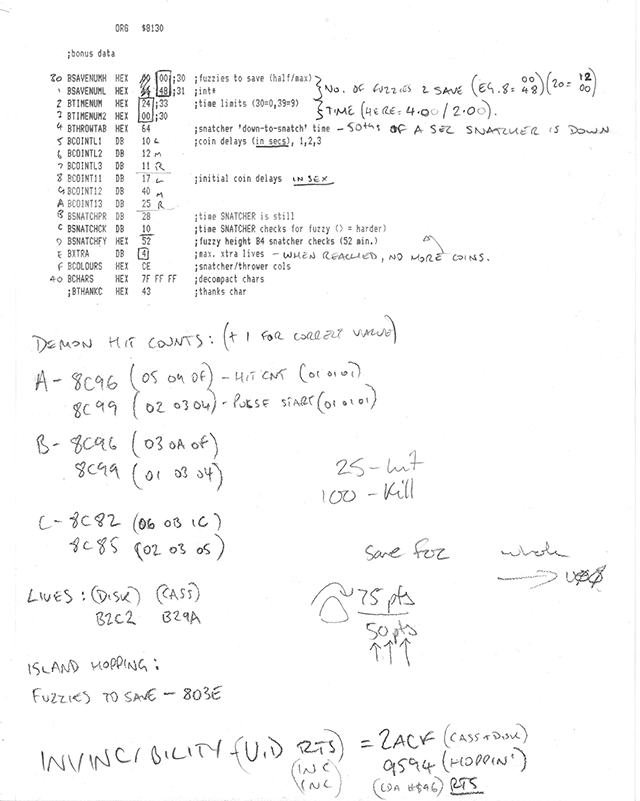 ORG $8130
;bonus data
30 BSAVENUMH HEX 00 ;30 ;fuzzies to save (half/max) } NO. OF FUZZIES 2 SAVE (EG. 8= 00 48) (20= 12 00)
1 BSAVENUML HEX 48 ;31 ;int*
2 BTIMENUM HEX 24 ;33 ;time limits (30=0,39=9) } TIME (HERE= 4.00/2.00).
3 BTIMENUM2 HEX 00 ;30
4 BTHROWTAB HEX 64 ;snatcher 'down-to-snatch' time - 50ths OF A SEC SNATCHER IS DOWN
5 BCOINTL1 DB 10 L ;coin delays (in secs), 1,2,3
6 BCOINTL2 DB 12 M
7 BCOINTL3 DB 11 R
8 BCOINT11 DB 17 L ;initial coin delays IN SEX
9 BCOINT12 DB 40 M
A BCOINT13 DB 25 R
B BSNATCHPR DB 28 ;time SNATCHER is still
C BSNATCHCK DB 10 ;time SNATCHER checks for fuzzy () = harder)
D BSNATCHFY HEX 52 ;fuzzy height B4 snatcher checks (52 min.)
E BXTRA DB 4 ;max. xtra lives - WHEN REACHED, NO MORE COINS.
F BCOLOURS HEX CE ;snatcher/thrower cols
40 BCHARS HEX 7F FF FF ;decompact chars
;BTHANKC HEX 43 ;thanks char
DEMON HIT COUNTS: (+ 1 FOR CORRECT VALUE)
A - 8C96 (05 09 0F) - HIT CNT (01 01 01)
8C99 (02 03 04) - PULSE START (01 01 01)
B - 8C96 (03 0A 0F)
8C99 (01 03 04)
25 - hit
100 - Kill
C - 8C82 (06 0B 1C)
8C85 (02 03 05)
save for whole
LIVES: (DISK) (CASS)
B2C2 B29A
75 pts
50 pts
ISLAND HOPPING:
FUZZIES TO SAVE - 803E
INVINCIBILITY (U.D RTS) = 2ACF (CASS + DISK)
(INC 9594 (HOPPIN')
INC) (LDA #$96) RTS